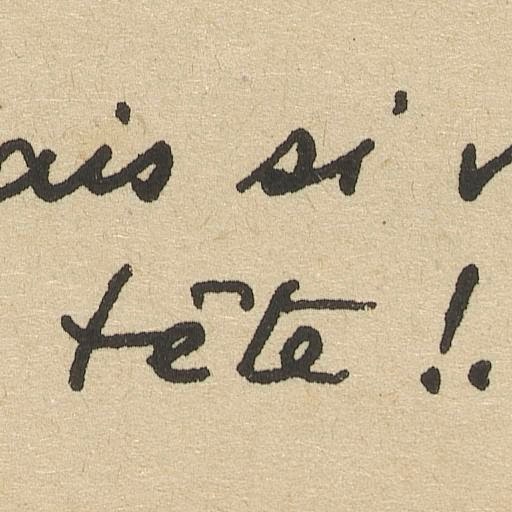 ais si v
tête !.